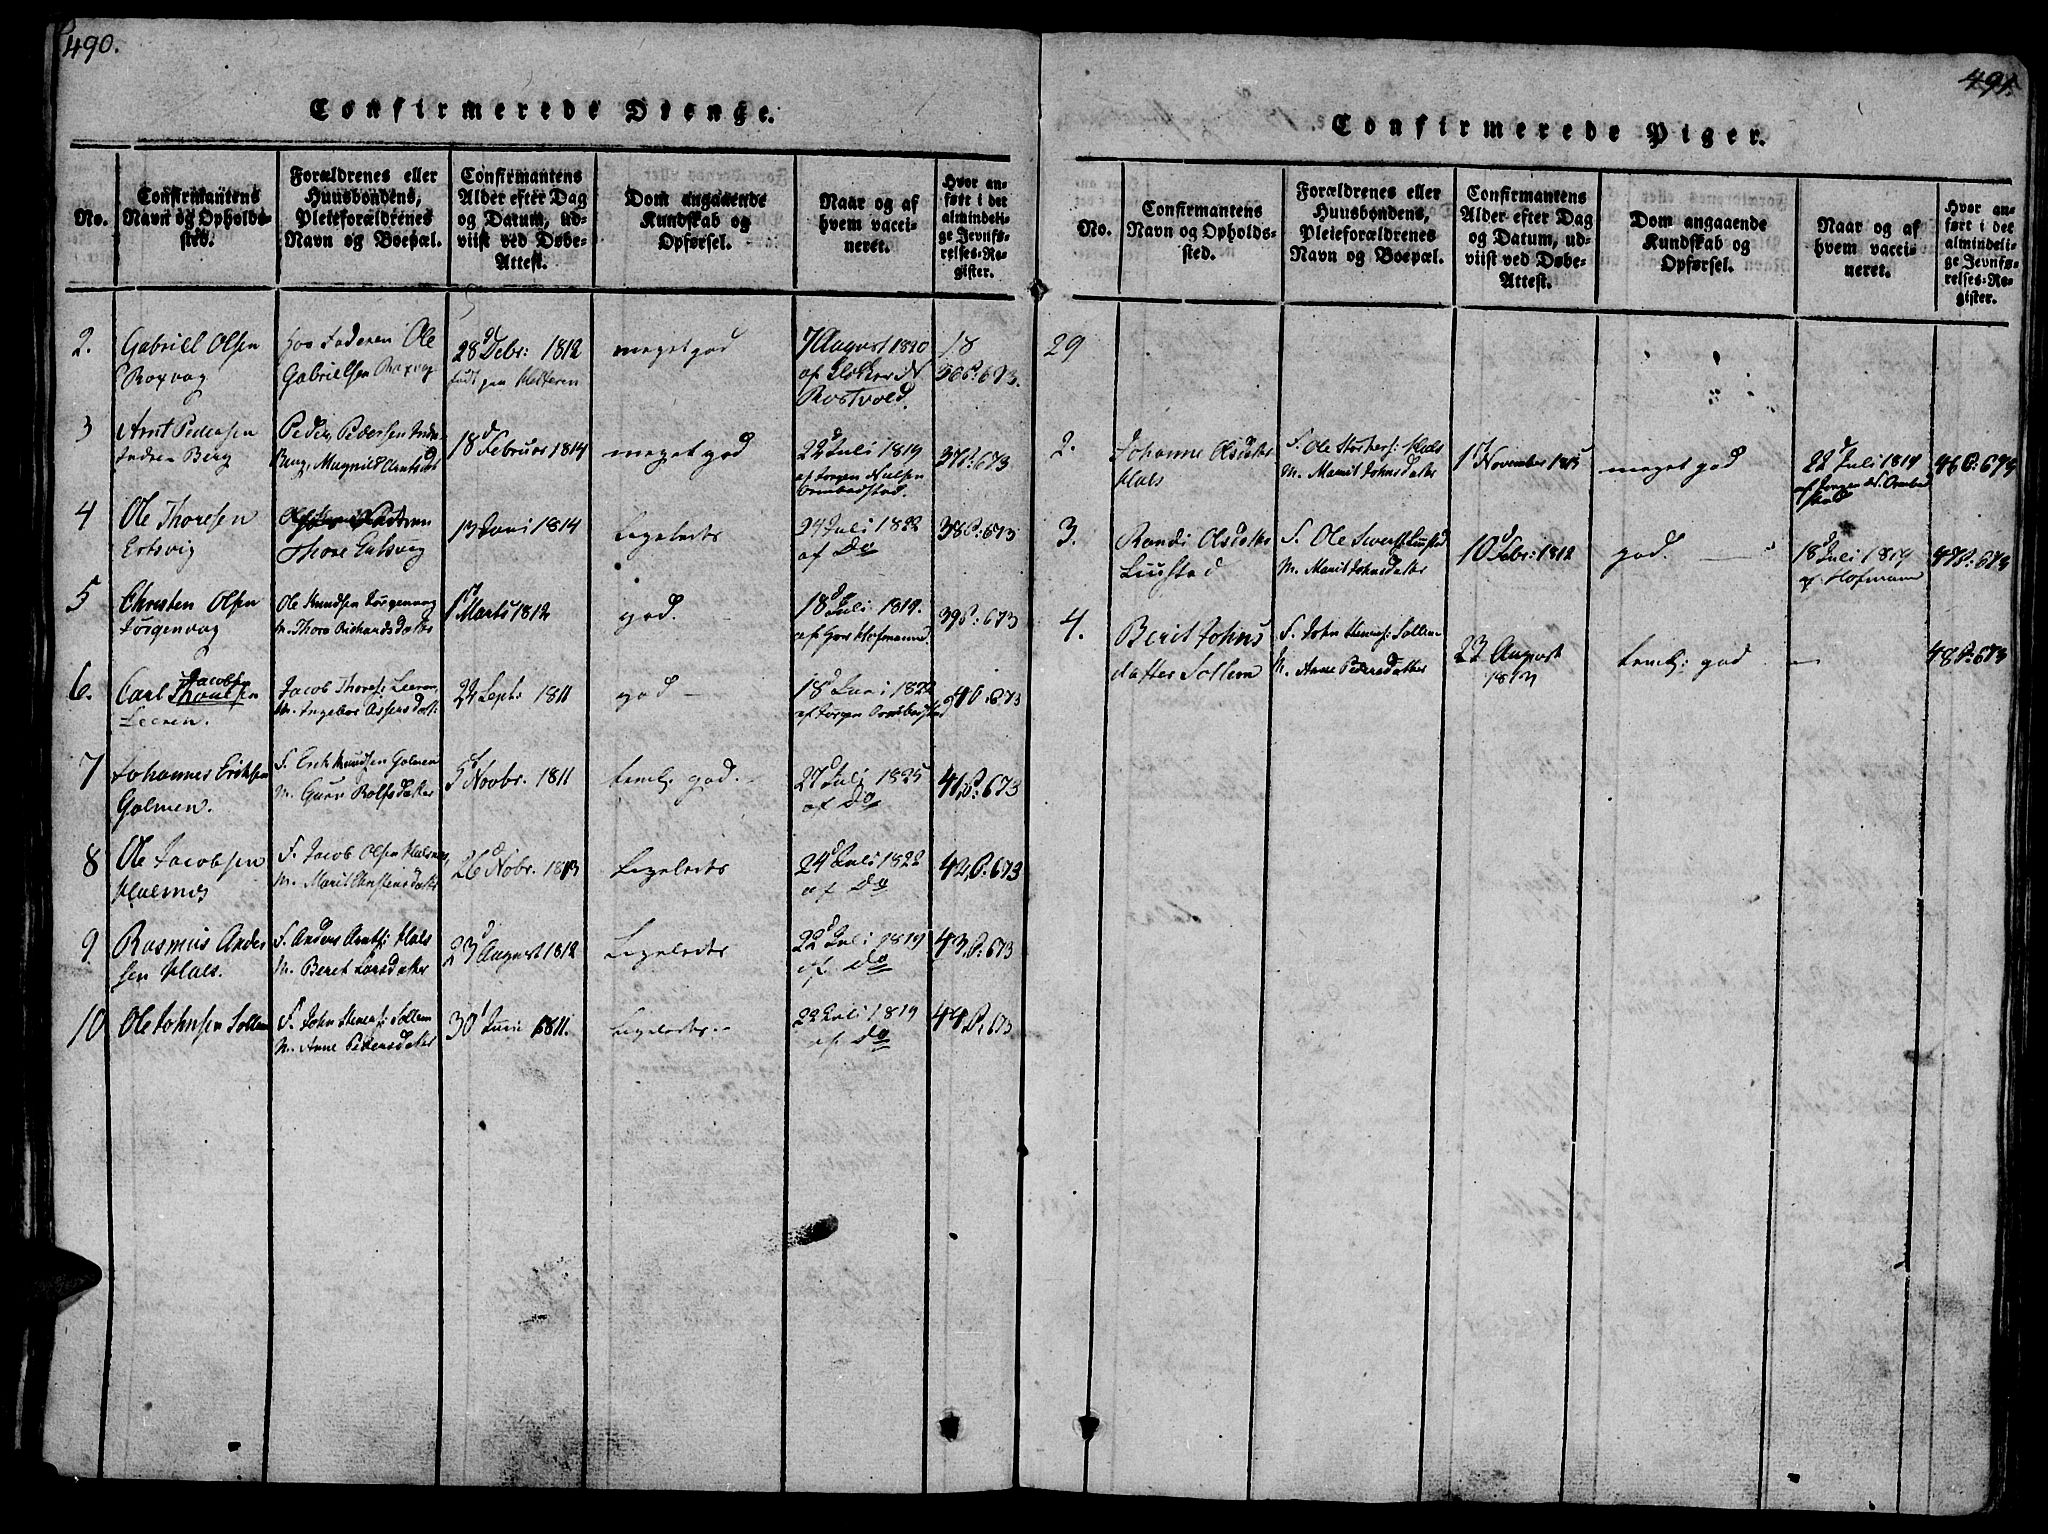 490.
Confirmerede Drenge.
No.
Confirmantens Navn og Opholdssted.
Forældrenes eller Huusbondens, Pleieforældrenes Navn og Boepæl.
Confirmantens Alder efter Dag og Datum, udviist ved Døbe-Attest.
Dom angaaende Kundskab og Opførsel.
Naar og af hvem vaccineret.
Hvor anført i det almindelige Jevnførelses-Register.
2.
Gabriel Olsen
hos Faderen Ole
Gabrielsen
28d Debr: 1812
meget god
7 August 1820
af
Rostvold.
18
36 P: 673.
3
Arnt Pedersen
Indre Berg
Peder Pedersen Indre
Berg, Magnild Arntsd
18d Februar 1814
meget god
22d Juli 1819
af Jørgen Nielsen
Ormbodstad.
37 P: 673
4
Ole Thoresen
Ertsvig
Thore
13 Juni 1814
Ligeledes
24 Juli 1822
af Do
38 P: 673
5
Christen Olsen
Jørgenvog
Ole Knudsen Jørgenvog
M. Thore Richardsdatter
1d Marts 1812
god.
18d Juli 1819.
af Hofmann
39 P: 673
6.
Jacobsen
Carl Thoresen
Leeren.
Jacob Thores: Leeren
M. Ingebor Assersdat:
22 Sept: 1811
god -
18d Juni 1822
af Jørgen Ormbodstad
40 P: 673
7
Johannes Eriksen
Golmen.
F. Erik Knudsen Golmen
M. Guru Rolfsdatter
5d Novbr. 1811
teml: god. -
27 Juli 1825
af Do
41, P: 673
8
Ole Jacobsen
Halsnes
F. Jacob Olsen Halsnes,
M. Marit Christensdatter
26d Nobr. 1813
Ligeledes
24d Juli 1822
af Do
42, P: 673
9
Rasmus Ander
sen Hals.
F. Anders Arnts: Hals
M. Beret Larsdatter
23d August 1812
Ligeledes
22d Juli 1819
af Do
43, P: 673
10
Ole Johnsen Sollem
F. John Steners: Sollem
M. Anne Pedersdatter
30d Juni 1811.
Ligeledes -
22 Juli 1819
af Do
44 P: 673
491.
Confirmerede Piger.
No.
Confirmantens Navn og Opholdssted.
Forældrenes eller Huusbondens, Pleieforældrenes Navn og Boepæl.
Confirmantens Alder efter Dag og Datum, udviist ved Døbe-Attest.
Dom angaaende Kundskab og Opførsel.
Naar og af hvem vaccineret.
Hvor anført i det almindelige Jevnførelses-Register.
29
2.
Johanne Olsdatter
Hals
F. Ole Hals
M. Marit Johnsdatter
1d November 1813
meget god
22d Juli 1819
af Jørgen N. Ormbod
stad
46 P: 673
3.
Randi Olsdatter
Liustad
F. Ole Liustad
M. Marit Johnsdatter
10d Febr: 1812
god.
18d Juli 1819
af Hofmann
47 P: 673
4.
Berit Johns
datter Sollem
F. John Steners: Sollem
M. Anne Pedersdatter
23 August
teml: god
-
48 P: 673